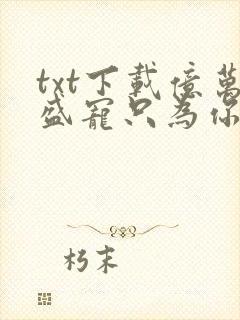 txt下載億萬
盛寵只為你
朽末